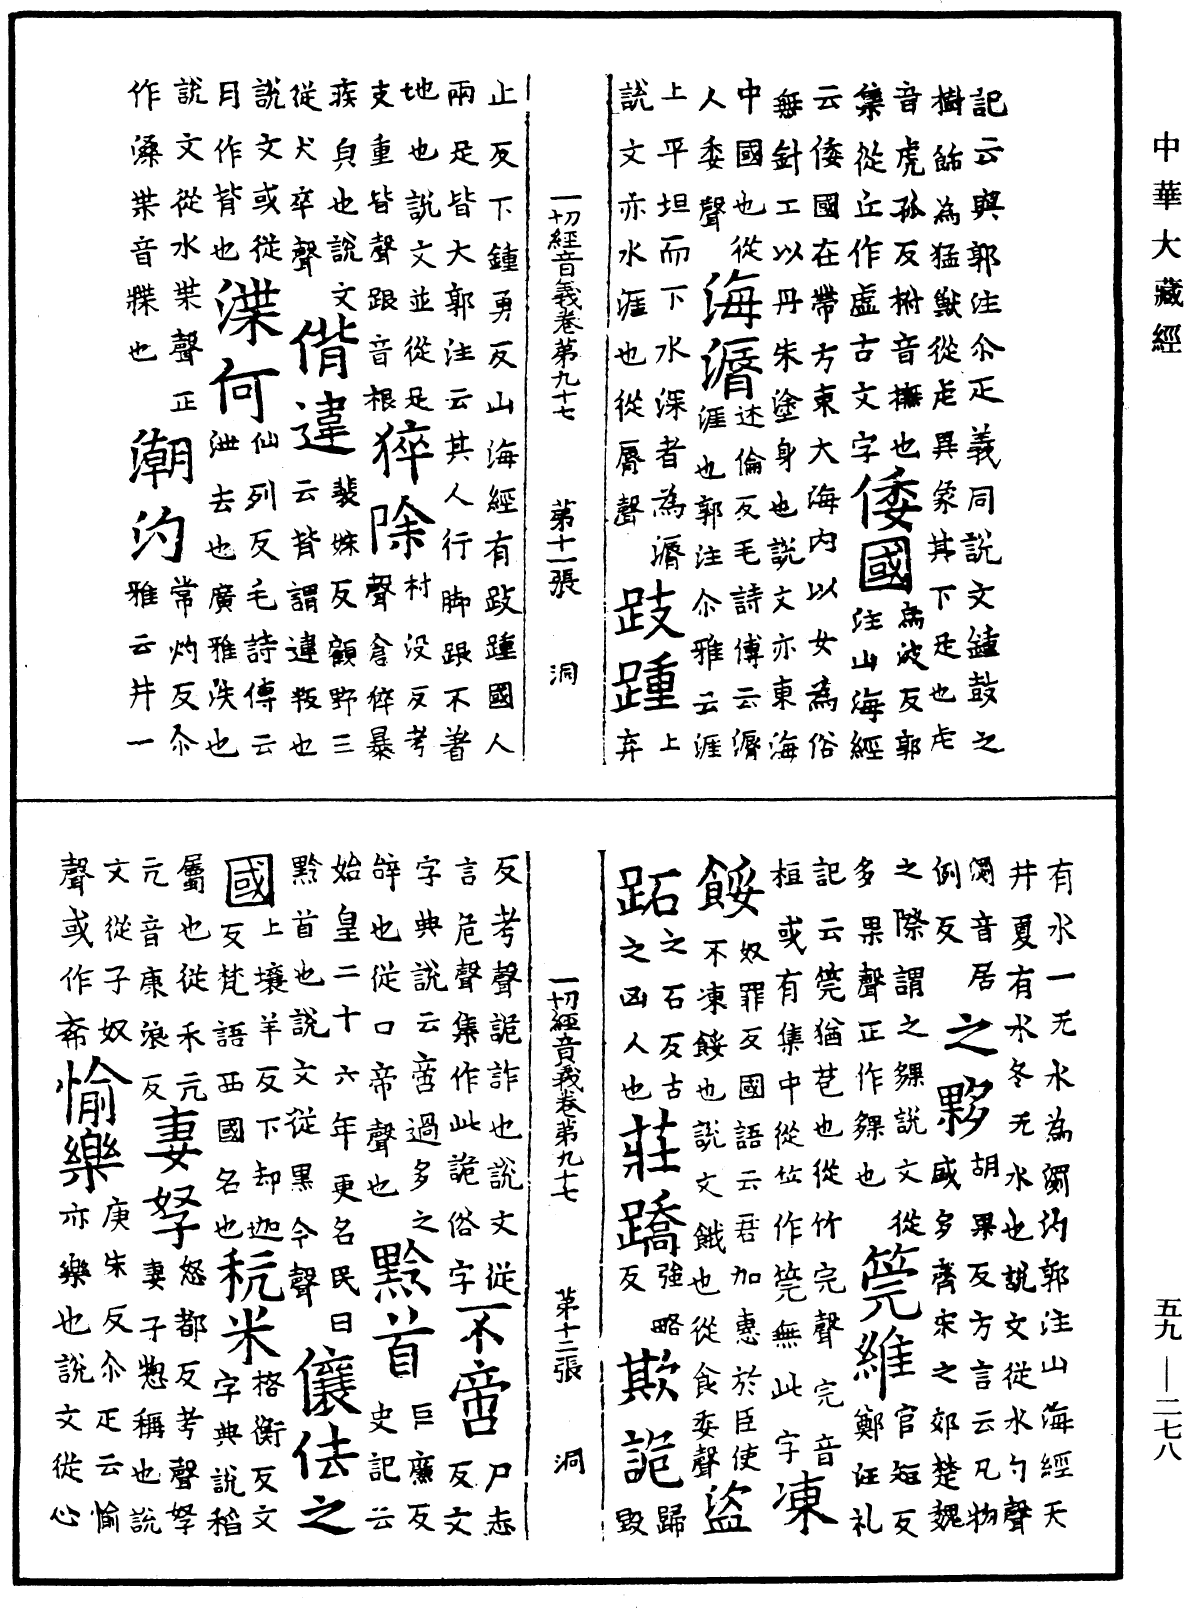 中華大藏經
記云與郭注尒疋義同說文鍾鼓之
樹餙為猛獸從虍異象其下足也虍
音虎孤反柎音撫也
集從丘作虛古文字
倭國
烏波反郭
注山海經
云倭國在帶方東大海内以女為俗
無針工以丹朱塗身也說文亦東海
中國也從
人委聲
海漘
述倫反毛詩傳云漘
涯也郭注尒雅云涯
上平坦而下水深者為漘
說文亦水涯也從脣聲
跂踵
上
弃
一切經音義卷第九十七 第十一張 洞
止反下鍾勇反山海經有跂踵國人
兩足皆大郭注云其人行脚跟不著
地也說文並從足
支重皆聲跟音根
猝除
村没反考
聲倉猝暴
疾皃也說文
從犬卒聲
偝違
裴妹反顧野王
云背謂違叛也
說文或從
月作背也
渫何
仙列反毛詩傳云
泄去也廣雅泆也
說文從水枼聲正
作渫枼音牒也
潮汋
常灼反尒
雅云井一
有水一无水為瀱汋郭注山海經天
井夏有水冬无水也說文從水勺聲
瀱音居
例反
之夥
胡果反方言云凡物
盛多齊宋之郊楚魏
之際謂之夥說文從
多果聲正作夥也
筦維
官短反
鄭注礼
記云筦猶苞也從竹完聲完音
桓或有集中從竺作筦無此字
凍餧
奴罪反國語云吾加惠於臣使
不凍餧也說文餓也從食委聲
盜跖
之石反古
之凶人也
莊蹻
強略
反
欺詭
歸
毀
一切經音義卷第九十七 第十二張 洞
反考聲詭詐也說文從
言危聲集作此詭俗字
不啻
尸志
反文
字典說云啻過多之
辝也從口帝聲也
黔首
巨廉反
史記云
始皇二十六年更名民曰
黔首也說文從黑今聲
儴佉之國
上壤羊反下却迦
反梵語西國名也
秔米
格衡反文
字典說稻
屬也從禾亢
亢音康浪反
妻孥
怒都反考聲孥
妻子惣稱也說
文從子奴
聲或作帑
愉樂
庾朱反尒疋云愉
亦樂也說文從心
五九—二七八